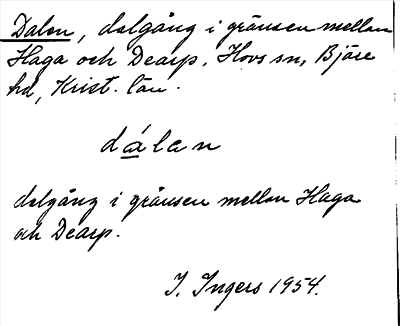 Dalen, dalgång i gränsen mellan
Haga och Dearp. Hovs sn, Bjäre
hd, Krist. län.
dálan
dalgång i gränsen mellan Haga
och Dearp.
I. Ingers 1954.